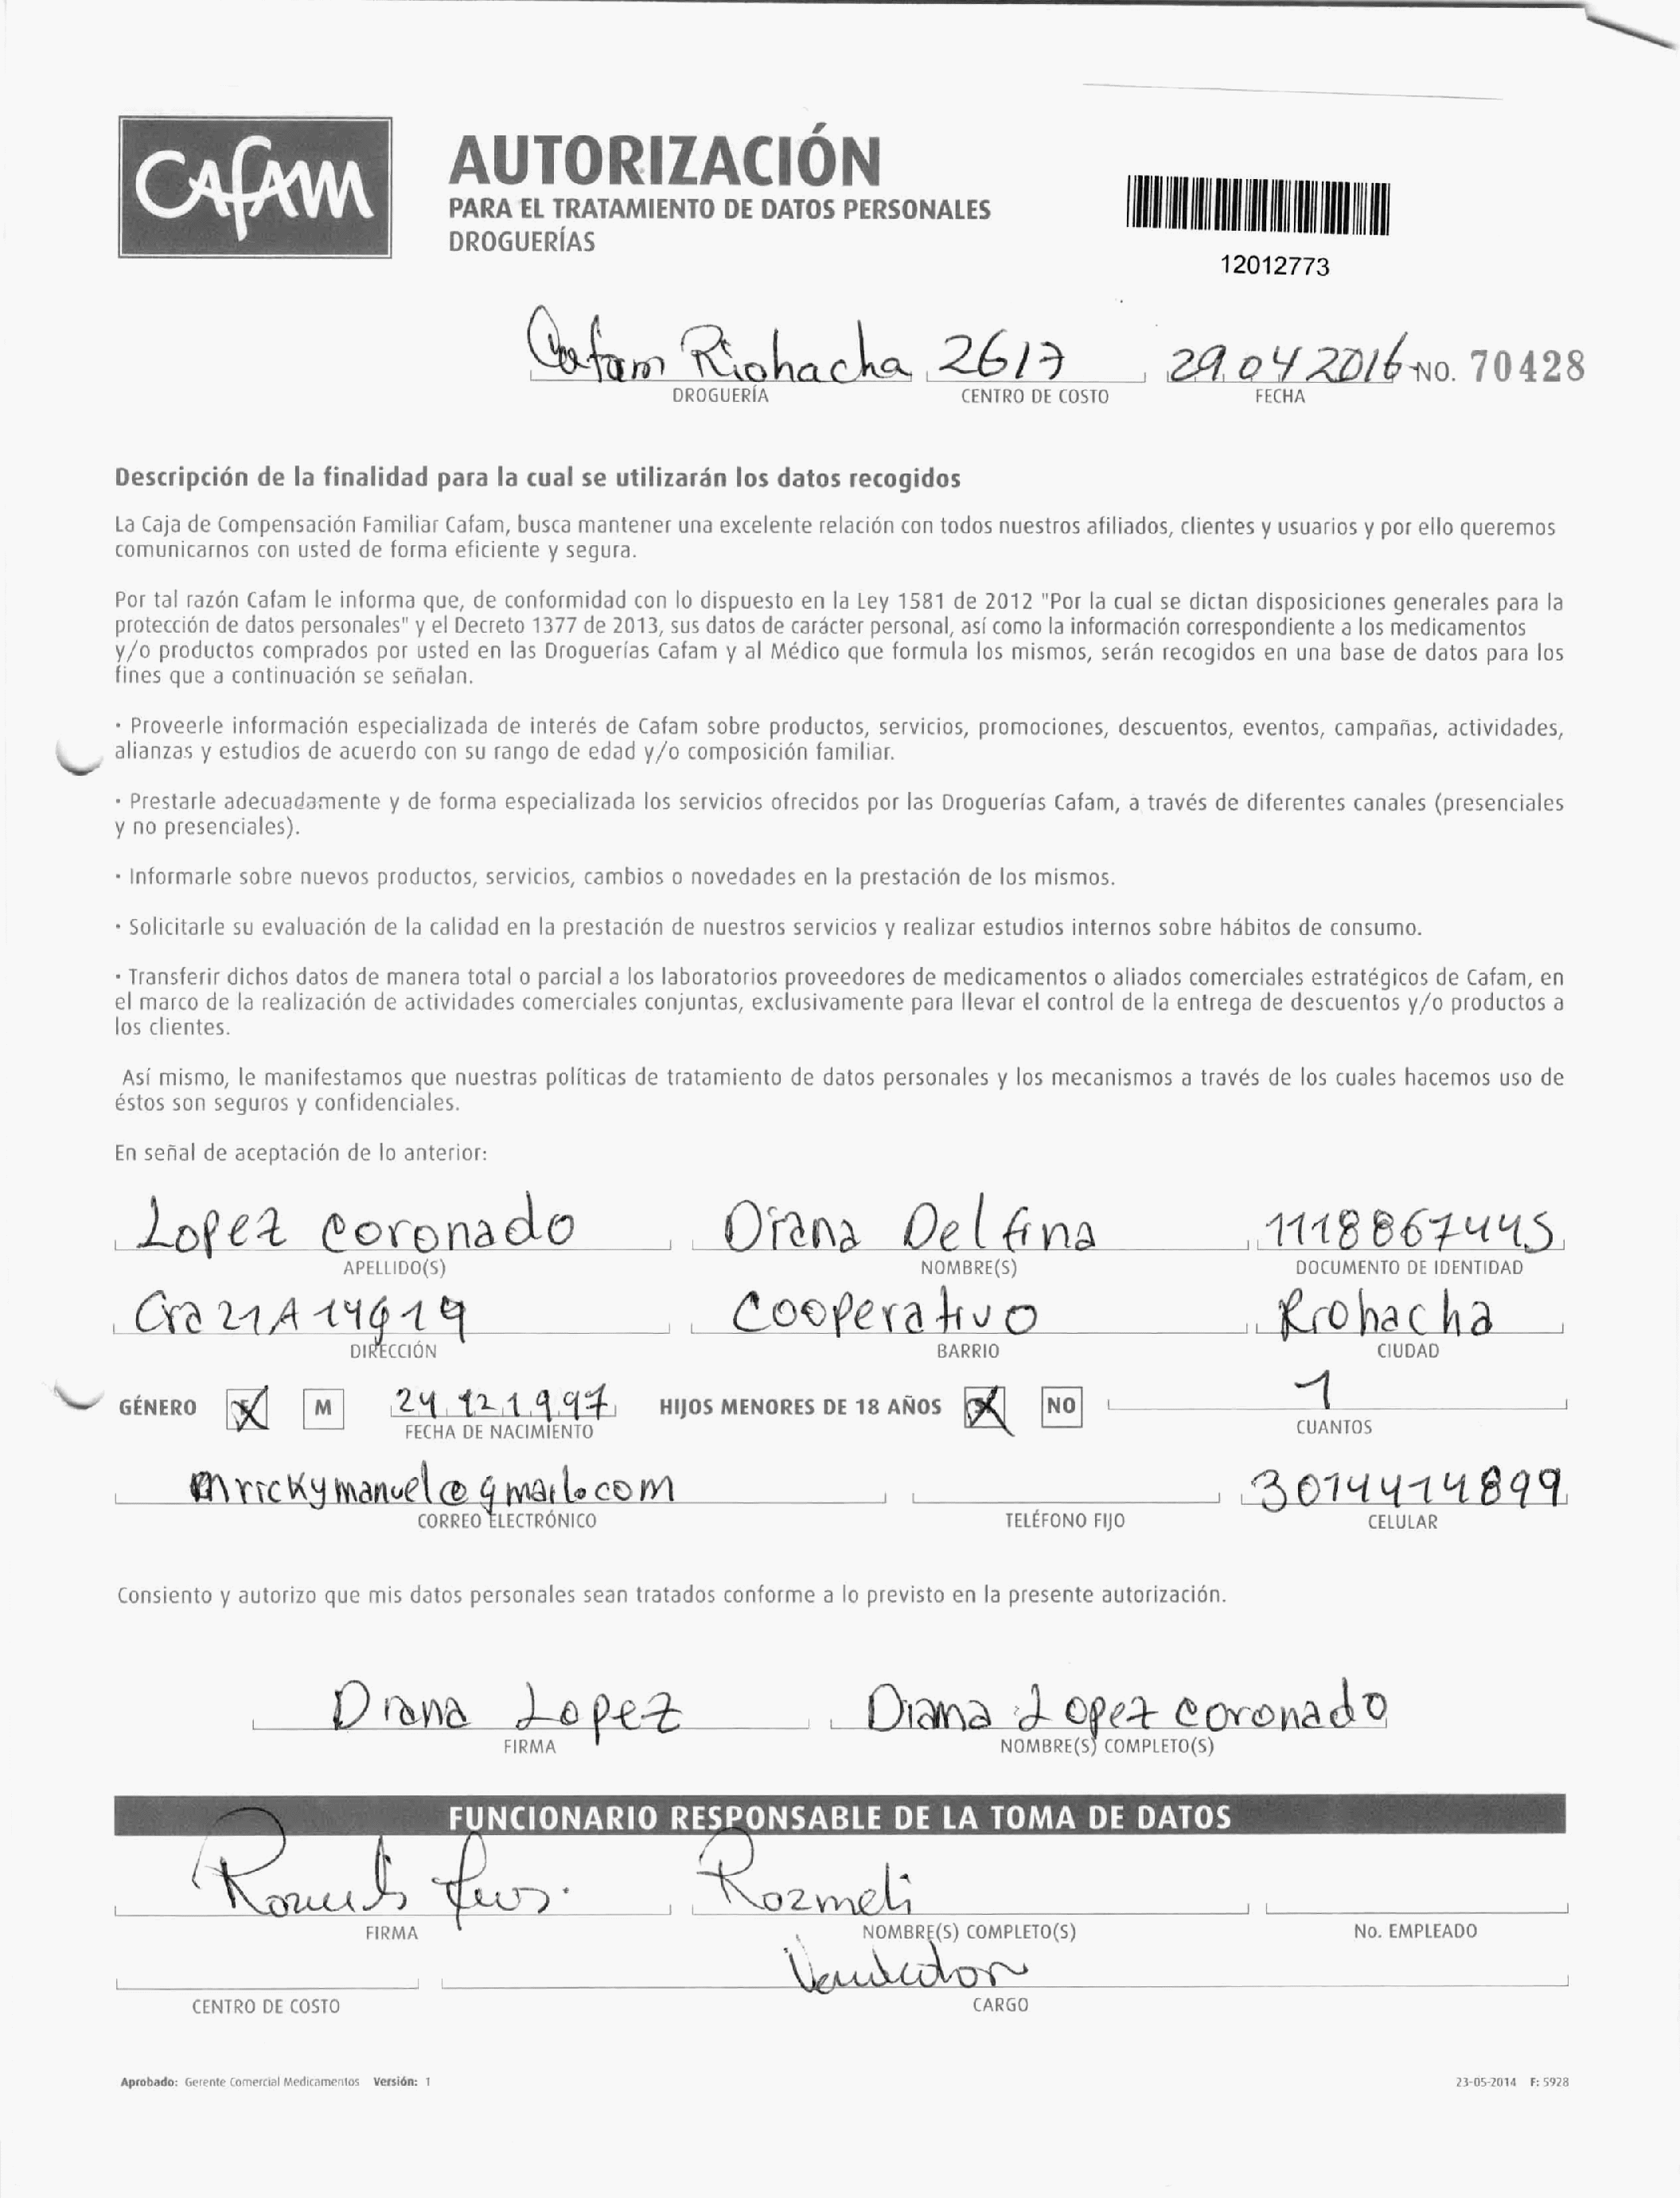 CAFAM
AUTORIZACIÓN
PARA EL TRATAMIENTO DE DATOS PERSONALES
DROGUERÍAS
12012773
Cafam Riohacha 2617 29.04 2016 NO. 70428
DROGUERÍA CENTRO DE COSTO FECHA
Descripción de la finalidad para la cual se utilizarán los datos recogidos
La Caja de Compensación Familiar Cafam, busca mantener una excelente relación con todos nuestros afiliados, clientes y usuarios y por ello queremos
comunicarnos con usted de forma eficiente y segura.
Por tal razón Cafam le informa que, de conformidad con lo dispuesto en la Ley 1581 de 2012 "Por la cual se dictan disposiciones generales para la
protección de datos personales" y el Decreto 1377 de 2013, sus datos de carácter personal, así como la información correspondiente a los medicamentos
y/o productos comprados por usted en las Droguerías Cafam y al Médico que formula los mismos, serán recogidos en una base de datos para los
fines que a continuación se señalan.
· Proveerle información especializada de interés de Cafam sobre productos, servicios, promociones, descuentos, eventos, campañas, actividades,
alianzas y estudios de acuerdo con su rango de edad y/o composición familiar.
· Prestarle adecuadamente y de forma especializada los servicios ofrecidos por las Droguerías Cafam, a través de diferentes canales (presenciales
y no presenciales).
· Informarle sobre nuevos productos, servicios, cambios o novedades en la prestación de los mismos.
· Solicitarle su evaluación de la calidad en la prestación de nuestros servicios y realizar estudios internos sobre hábitos de consumo.
· Transferir dichos datos de manera total o parcial a los laboratorios proveedores de medicamentos o aliados comerciales estratégicos de Cafam, en
el marco de la realización de actividades comerciales conjuntas, exclusivamente para llevar el control de la entrega de descuentos y/o productos a
los clientes.
Así mismo, le manifestamos que nuestras políticas de tratamiento de datos personales y los mecanismos a través de los cuales hacemos uso de
éstos son seguros y confidenciales.
En señal de aceptación de lo anterior:
Lopez coronado Diana Delfina 1118867445
APELLIDO(S) NOMBRE(S) DOCUMENTO DE IDENTIDAD
Cra 21A 14G19 Cooperativo Riohacha
DIRECCIÓN BARRIO CIUDAD
GÉNERO M 24 12 1997 HIJOS MENORES DE 18 AÑOS NO 1
FECHA DE NACIMIENTO CUANTOS
mrickymanuel@gmail.com 3014414899
CORREO ELECTRÓNICO TELÉFONO FIJO CELULAR
Consiento y autorizo que mis datos personales sean tratados conforme a lo previsto en la presente autorización.
Diana Lopez Diana Lopez coronado
FIRMA NOMBRE(S) COMPLETO(S)
FUNCIONARIO RESPONSABLE DE LA TOMA DE DATOS
Rozmeli
FIRMA NOMBRE(S) COMPLETO(S) No. EMPLEADO
Vendedor
CENTRO DE COSTO CARGO
Aprobado: Gerente Comercial Medicamentos Versión: 1 23-05-2014 F: 5928